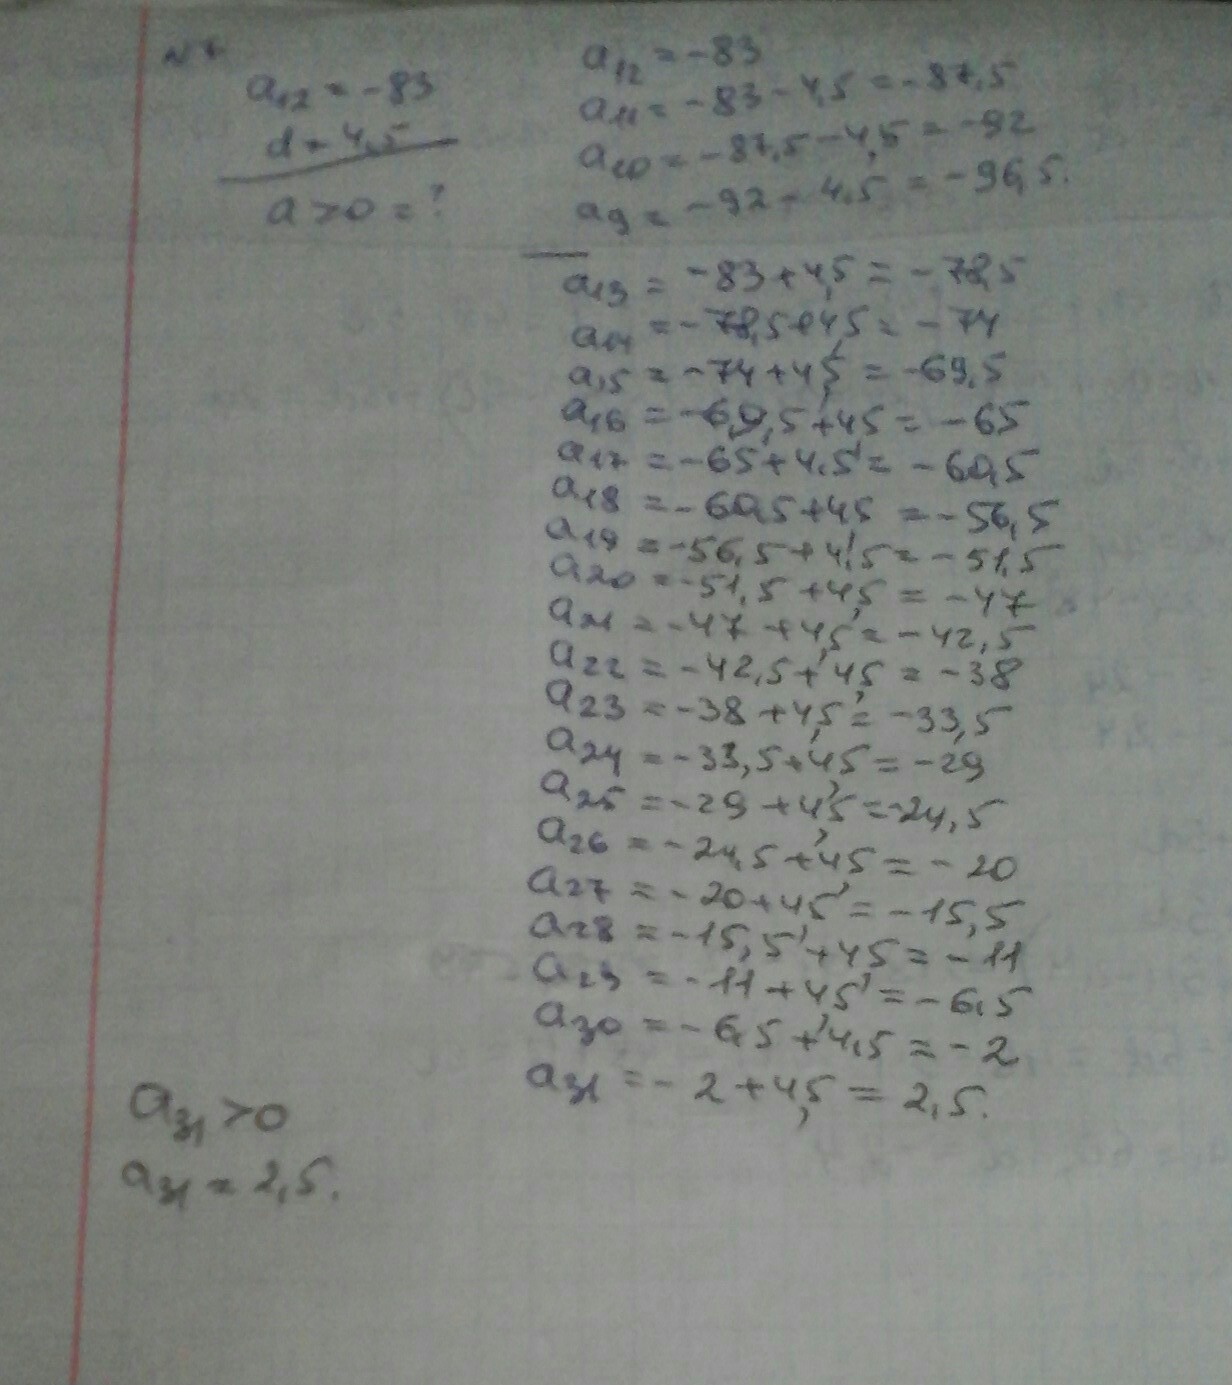 №7
a₁₂ = -83
d = 4,5
a > 0 = ?
a₁₂ = -83
a₁₁ = -83 - 4,5 = -87,5
a₁₀ = -87,5 - 4,5 = -92
a₉ = -92 - 4,5 = -96,5.
a₁₃ = -83 + 4,5 = -78,5
a₁₄ = -78,5 + 4,5 = -74
a₁₅ = -74 + 4,5 = -69,5
a₁₆ = -69,5 + 4,5 = -65
a₁₇ = -65 + 4,5 = -60,5
a₁₈ = -60,5 + 4,5 = -56,5
a₁₉ = -56,5 + 4,5 = -51,5
a₂₀ = -51,5 + 4,5 = -47
a₂₁ = -47 + 4,5 = -42,5
a₂₂ = -42,5 + 4,5 = -38
a₂₃ = -38 + 4,5 = -33,5
a₂₄ = -33,5 + 4,5 = -29
a₂₅ = -29 + 4,5 = -24,5
a₂₆ = -24,5 + 4,5 = -20
a₂₇ = -20 + 4,5 = -15,5
a₂₈ = -15,5 + 4,5 = -11
a₂₉ = -11 + 4,5 = -6,5
a₃₀ = -6,5 + 4,5 = -2
a₃₁ = -2 + 4,5 = 2,5.
a₃₁ > 0
a₃₁ = 2,5.